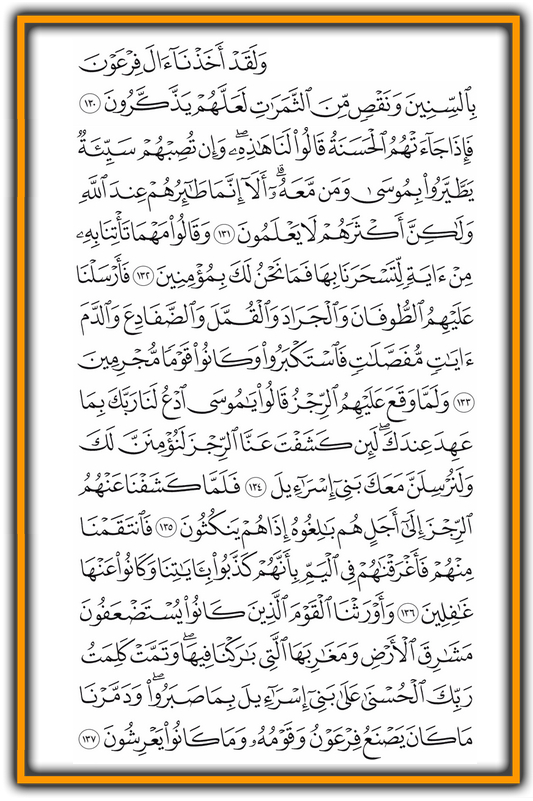 وَلَقَدۡ أَخَذۡنَآ ءَالَ فِرۡعَوۡنَ
بِٱلسِّنِينَ وَنَقۡصٖ مِّنَ ٱلثَّمَرَٰتِ لَعَلَّهُمۡ يَذَّكَّرُونَ ١٣٠
فَإِذَا جَآءَتۡهُمُ ٱلۡحَسَنَةُ قَالُواْ لَنَا هَٰذِهِۦۖ وَإِن تُصِبۡهُمۡ سَيِّئَةٞ
يَطَّيَّرُواْ بِمُوسَىٰ وَمَن مَّعَهُۥٓۗ أَلَآ إِنَّمَا طَٰٓئِرُهُمۡ عِندَ ٱللَّهِ
وَلَٰكِنَّ أَكۡثَرَهُمۡ لَا يَعۡلَمُونَ ١٣١ وَقَالُواْ مَهۡمَا تَأۡتِنَا بِهِۦ
مِنۡ ءَايَةٖ لِّتَسۡحَرَنَا بِهَا فَمَا نَحۡنُ لَكَ بِمُؤۡمِنِينَ ١٣٢ فَأَرۡسَلۡنَا
عَلَيۡهِمُ ٱلطُّوفَانَ وَٱلۡجَرَادَ وَٱلۡقُمَّلَ وَٱلضَّفَادِعَ وَٱلدَّمَ
ءَايَٰتٖ مُّفَصَّلَٰتٖ فَٱسۡتَكۡبَرُواْ وَكَانُواْ قَوۡمٗا مُّجۡرِمِينَ
١٣٣ وَلَمَّا وَقَعَ عَلَيۡهِمُ ٱلرِّجۡزُ قَالُواْ يَٰمُوسَى ٱدۡعُ لَنَا رَبَّكَ بِمَا
عَهِدَ عِندَكَۖ لَئِن كَشَفۡتَ عَنَّا ٱلرِّجۡزَ لَنُؤۡمِنَنَّ لَكَ
وَلَنُرۡسِلَنَّ مَعَكَ بَنِيٓ إِسۡرَٰٓءِيلَ ١٣٤ فَلَمَّا كَشَفۡنَا عَنۡهُمُ
ٱلرِّجۡزَ إِلَىٰٓ أَجَلٍ هُم بَٰلِغُوهُ إِذَا هُمۡ يَنكُثُونَ ١٣٥ فَٱنتَقَمۡنَا
مِنۡهُمۡ فَأَغۡرَقۡنَٰهُمۡ فِي ٱلۡيَمِّ بِأَنَّهُمۡ كَذَّبُواْ بِـَٔايَٰتِنَا وَكَانُواْ عَنۡهَا
غَٰفِلِينَ ١٣٦ وَأَوۡرَثۡنَا ٱلۡقَوۡمَ ٱلَّذِينَ كَانُواْ يُسۡتَضۡعَفُونَ
مَشَٰرِقَ ٱلۡأَرۡضِ وَمَغَٰرِبَهَا ٱلَّتِي بَٰرَكۡنَا فِيهَاۖ وَتَمَّتۡ كَلِمَتُ
رَبِّكَ ٱلۡحُسۡنَىٰ عَلَىٰ بَنِيٓ إِسۡرَٰٓءِيلَ بِمَا صَبَرُواْۖ وَدَمَّرۡنَا
مَا كَانَ يَصۡنَعُ فِرۡعَوۡنُ وَقَوۡمُهُۥ وَمَا كَانُواْ يَعۡرِشُونَ ١٣٧